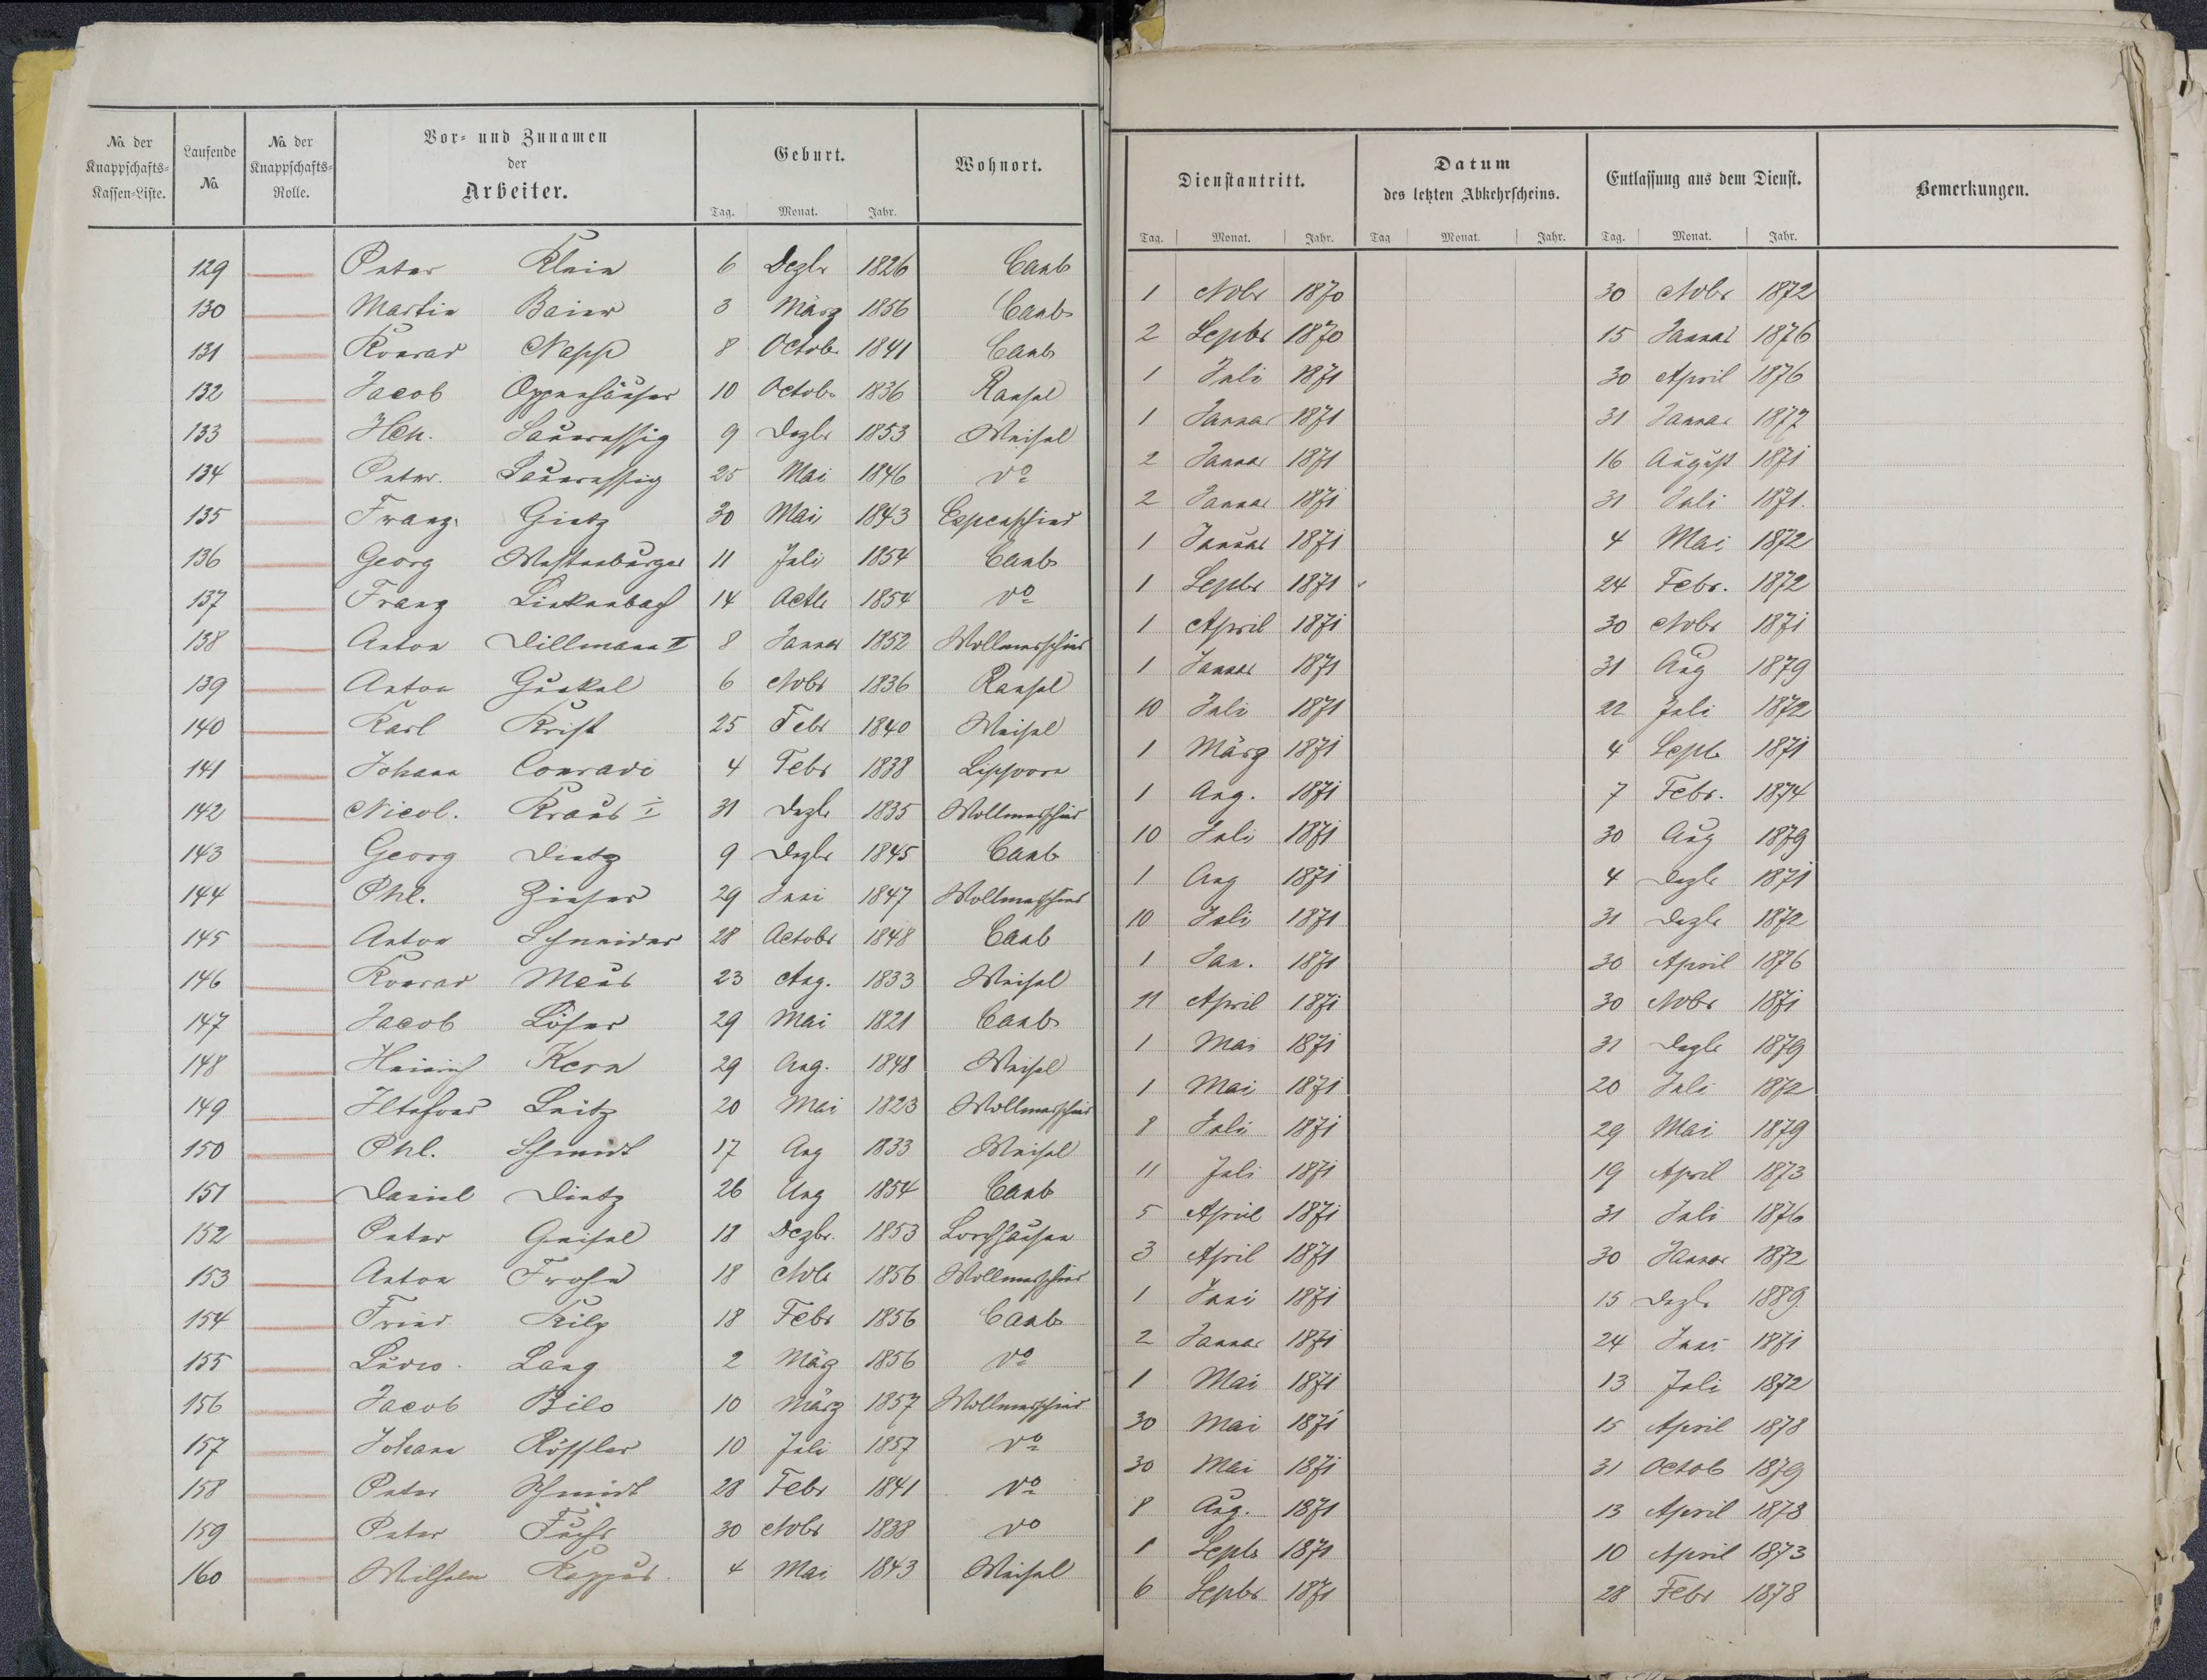 No. der Knappschafts-Kassen-Liste. | Laufende No. | No. der Knappschafts-Rolle. | Vor- und Zunamen der Arbeiter. | Geburt. | Wohnort. | Dienstantritt. | Datum des letzten Abkehrscheins. | Entlassung aus dem Dienst. | Bemerkungen.
Tag. | Monat. | Jahr. | Tag. | Monat. | Jahr. | Tag | Monat. | Jahr. | Tag. | Monat. | Jahr.
129 Peter Klein 6 Dezbr 1826 Caub 1 Nobr 1870 30 Nobr 1872
130 Martin Baier 3 März 1856 Caub 2 Sepbr 1870 15 Januar 1876
131 Konrad Napp 8 Octob. 1841 Caub 1 Juli 1871 30 April 1876
132 Jacob Oppenhäuser 10 Octob. 1836 Ransel 1 Januar 1871 31 Januar 1877
133 Hch. Saueressig 9 Dezbr 1853 Weisel 2 Januar 1871 16 August 1871
134 Peter. Saueressig 25 Mai 1846 do 2 Januar 1871 31 Juli 1871.
135 Franz. Gietz 30 Mai 1843 Espenschied 1 Januar 1871 4 Mai 1872
136 Georg Westenburger 11 Juli 1854 Caub 1 Sepbr 1871 24 Febr. 1872
137 Franz Linkenbach 14 Octb 1854 do 1 April 1871 30 Nobr 1871
138 Anton Dillmann II 8 Januar 1852 Wollmerschied 1 Januar 1871 31 Aug 1879
139 Anton Gunkel 6 Nobr 1836 Ransel 10 Juli 1871 22 Juli 1872
140 Karl Krist 25 Febr 1840 Weisel 1 März 1871 4 Sepb 1871
141 Johann Conradi 4 Febr 1838 Lipporn 1 Aug. 1871 7 Febr. 1874
142 Nicol. Kraus I 31 Dezb 1835 Wollmerschied 10 Juli 1871 30 Aug 1879
143 Georg Dietz 9 Dezbr 1845 Caub 1 Aug 1871 4 Dezb 1871
144 Phl. Zieser 29 Juni 1847 Wollmerschied 10 Juli 1871 31 Dezb 1872
145 Anton Schneider 28 Octobr 1848 Caub 1 Jan. 1871 30 April 1876
146 Konrad Maus 23 Aug. 1833 Weisel 11 April 1871 30 Nobr 1871
147 Jacob Löser 29 Mai 1821 Caub 1 Mai 1871 31 Dezb 1879
148 Heinrich Kern 29 Aug. 1848 Weisel 1 Mai 1871 20 Juli 1872
149 Leitz 20 Mai 1823 Wollmerschied 8 Juli 1871 29 Mai 1879
150 Phl. Schmidt 17 Aug 1833 Weisel 11 Juli 1871 19 April 1873
151 Daniel Dietz 26 Aug 1854 Caub 5 April 1871 31 Juli 1876
152 Peter Geisel 18 Dezbr. 1853 Lorchhausen 3 April 1871 30 Januar 1872
153 Anton Frohn 18 Nobr 1856 Wollmerschied 1 Juni 1871 15 Dezb 1889
154 Fried. Kilp 18 Febr 1856 Caub 2 Januar 1871 24 Juni 1871
155 Ludw. Lang 2 März 1856 do 1 Mai 1871 13 Juli 1872
156 Jacob Bilo 10 März 1857 Wollmerschied 30 Mai 1871 15 April 1878
157 Johann Rössler 10 Juli 1857 do 30 Mai 1871 31 Octob 1879
158 Peter Schmidt 28 Febr 1841 do 8 Aug. 1871 13 April 1878
159 Peter Fuchs 30 Nobr 1838 do 1 Sepbr 1871 10 April 1873
160 Wilhelm Kappus. 4 Mai 1843 Weisel 6 Sepbr 1871 28 Febr 1878